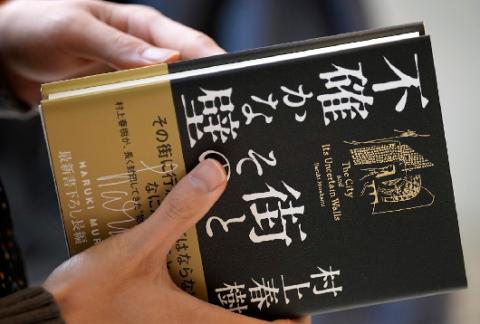 街とその
不確かな壁
村上春樹
The City
and
Its Uncertain Walls
Haruki Murakami
その街に行
なに はならな
村上春樹が、長く封印してきた
HARUKI MUR
最新書下ろし長編